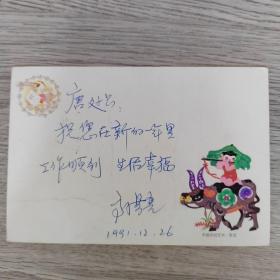 唐处长:
祝您在新的一年里
工作顺利 生活幸福
1991.12.26